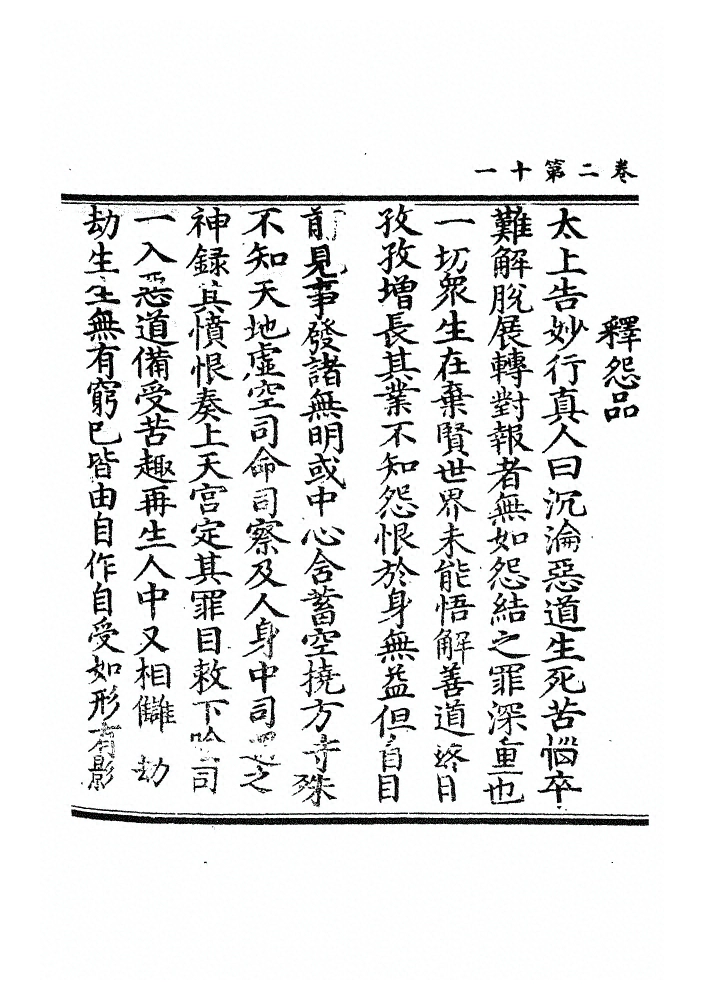 卷二第十一
釋怨品
太上告妙行真人曰沉淪惡道生死苦惱卒
難解脫展轉對報者無如怨結之罪深重也
一切衆生在棄賢世界未能悟解善道終日
孜孜增長其業不知怨恨於身無益但自目
前見事發諸無明或中心含蓄空撓方寸殊
不知天地虛空司命司察及人身中司過之
神録其憤恨奏上天宫定其罪目敕下陰司
一入惡道備受苦趣再生人中又相讎 劫
劫生生無有窮已皆由自作自受如形有影